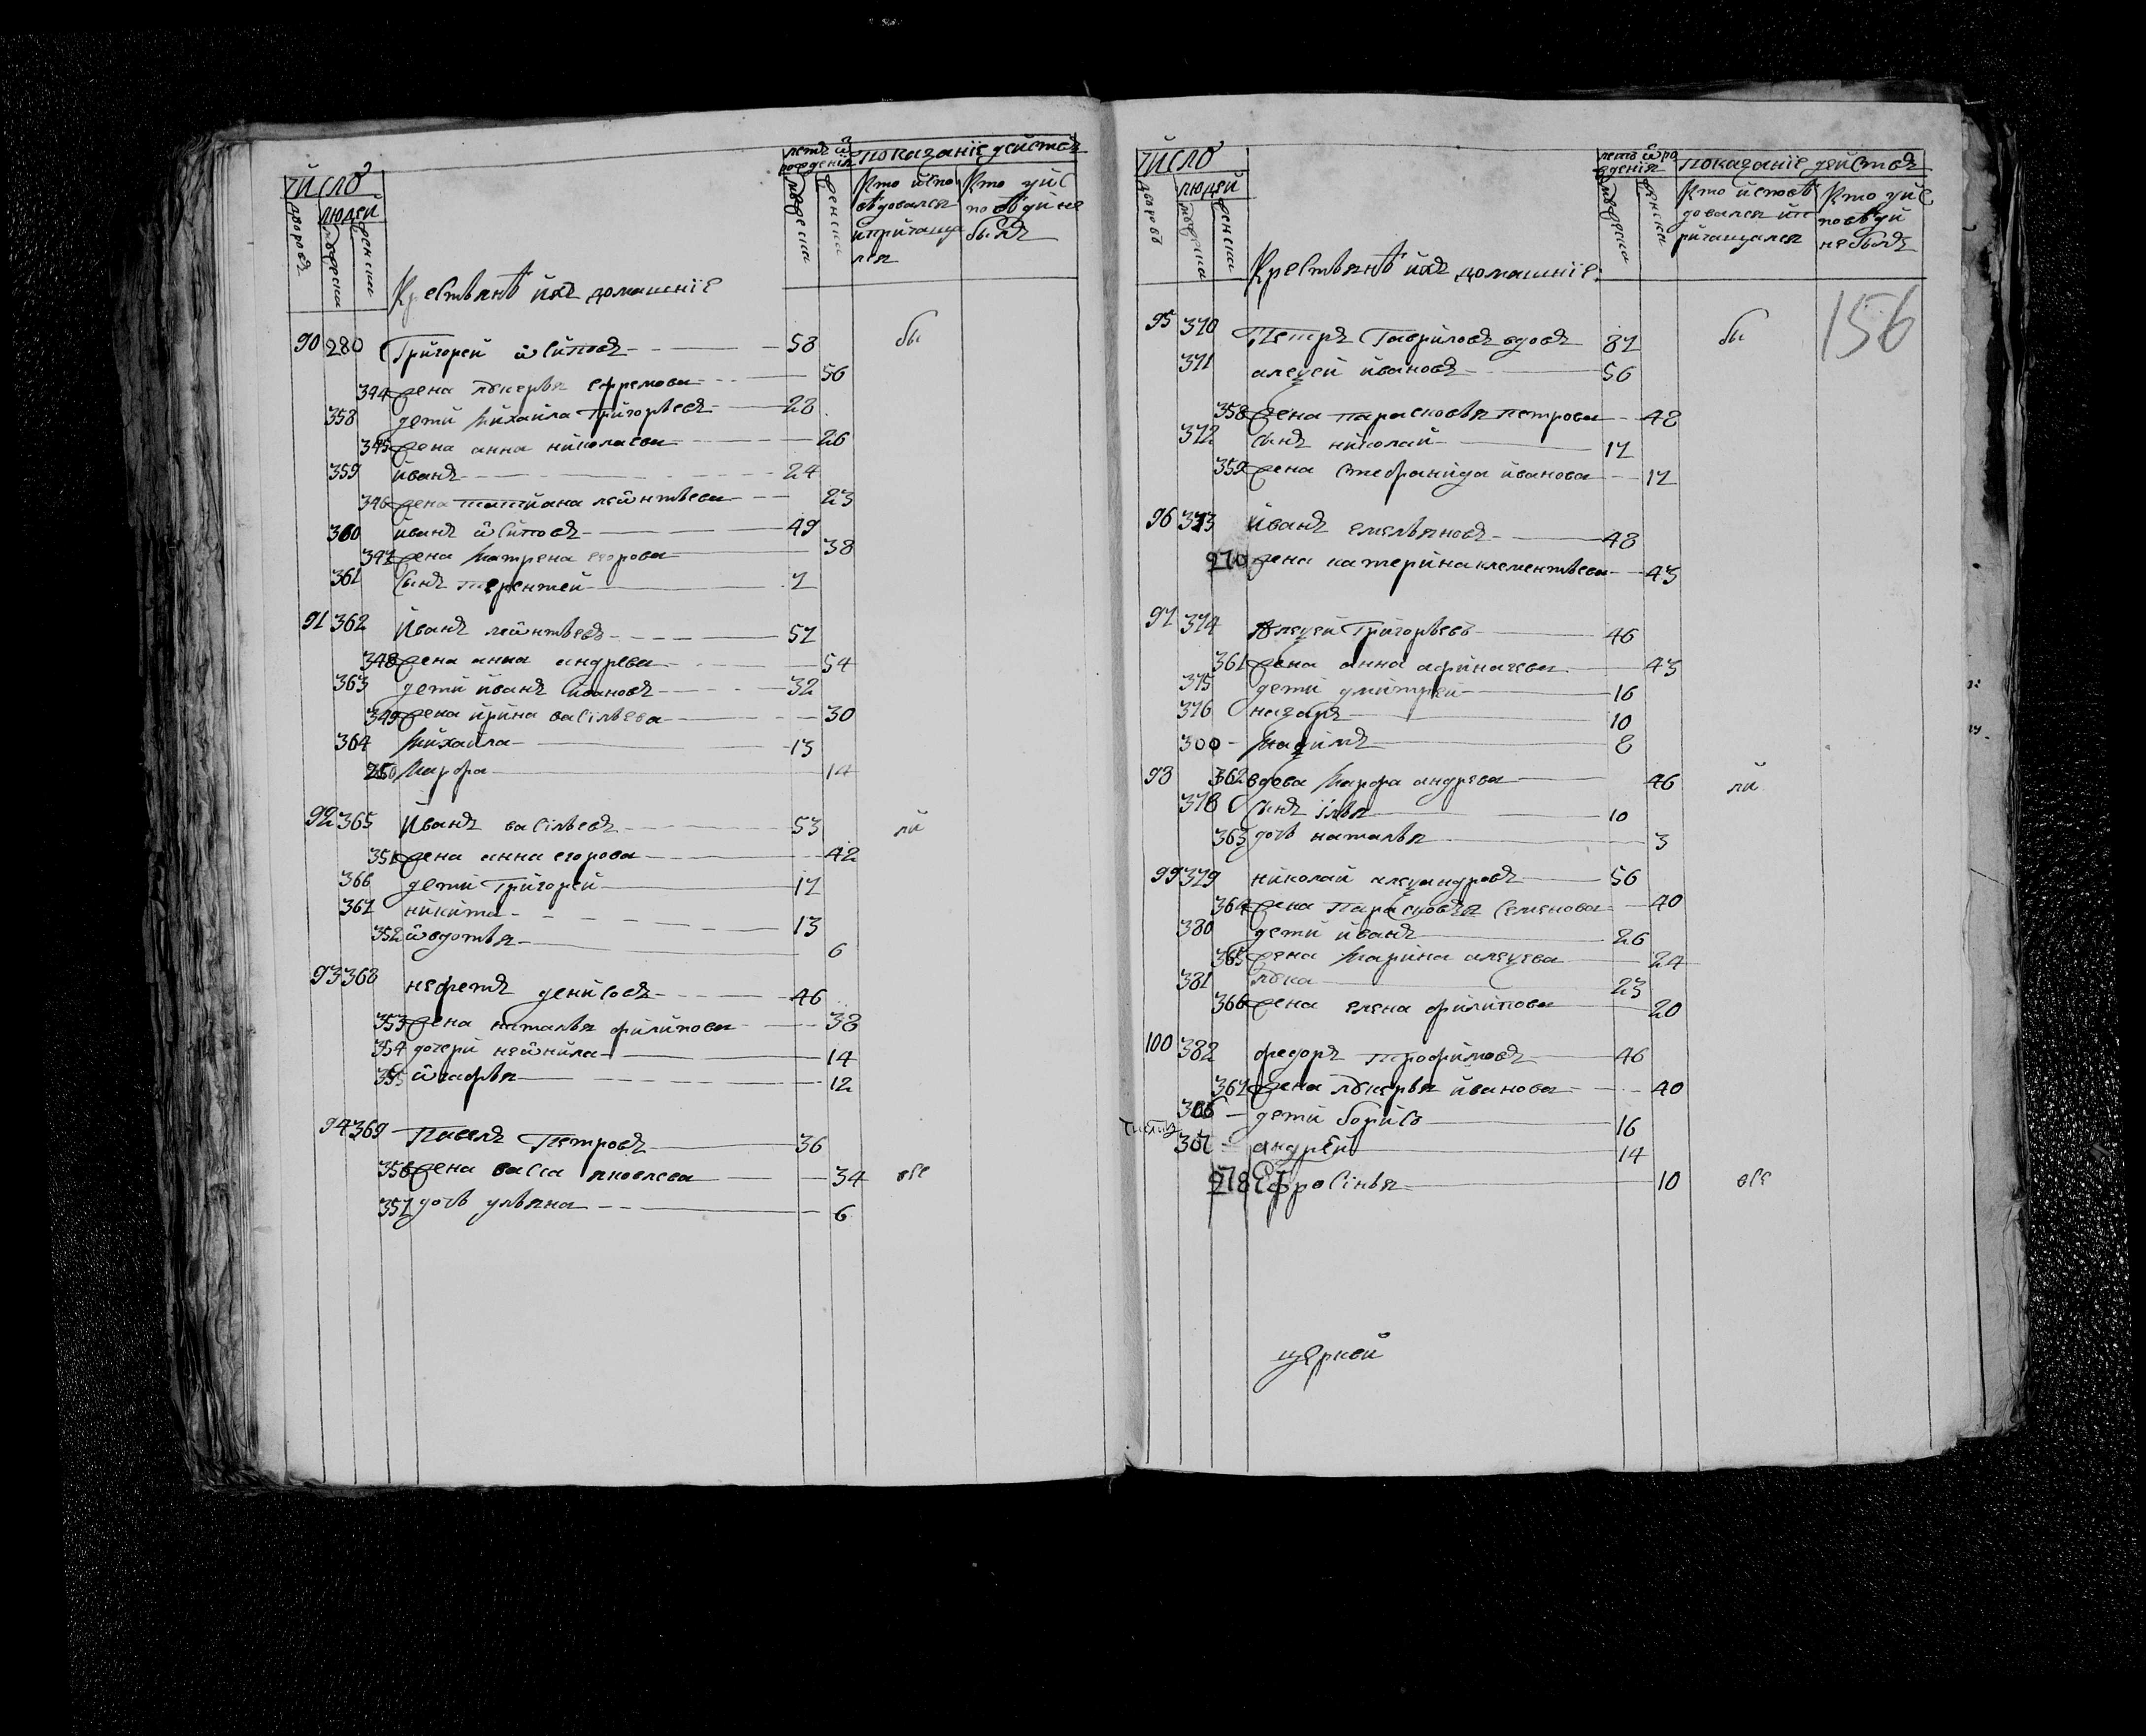 число
дворовъ
людей
мужеска
женска
Крестьянѣ ихъ домашніе
летъ ѿ рождения
мужеска
женска
показаніе действъ
Кто испо
ведовался
и причаща
лся
Кто у ис
поведи не
былъ
90 280 Григорей Ѡсиповъ 58 бы
344 жена лукерья ефремова 56
358 дети Михайла Григорьевъ 28
345 жена анна николаева 26
359 иванъ 24
346 жена татиана леѡнтьева 23
360 иванъ ѡсиповъ 49
347 жена Матрена егорова 38
361 Сынъ терентей 7
91 362 Иванъ леѡнтьевъ 57
348 жена анна андреева 54
363 дети иванъ ивановъ 32
349 жена ирина васильева 30
364 Михайла 13
350 Марфа 14
92 365 Иванъ васильевъ 53 ли
351 жена анна егорова 42
366 дети Григорей 17
367 никита 13
352 ѡвдотья 6
93 368 нефетъ денисовъ 46
353 жена наталья филипова 38
354 дочери неѡнила 14
355 ѡгафья 12
94 369 Павелъ Петровъ 36
356 жена васса яковлева 34 все
357 дочь ульяна 6
число
дворовъ
людей
мужеска
женска
Крестьянѣ ихъ домашніе
летъ ѿ ро
ждения
мужеска
женска
показаніе действъ
Кто исповѣ
довался ип
ричащался
Кто у ис
повѣди
не былъ
156
95 370 Петръ Гавриловъ вдовъ 87 бы
371 алеѯей ивановъ 56
358 жена парасковья петрова 48
372 Сынъ николай 17
359 жена Стефанида иванова 17
96 373 Иванъ емельяновъ 48
270 жена катерина клементьева 43
97 374 Алеѯей Григорьевъ 46
361 жена анна афиначева 43
375 дети дмитрей 16
376 назаръ 10
300 Маѯимъ 8
98 362 вдова Марфа андреева 46 ли
378 Сынъ Илья 10
363 дочь наталья 3
99 379 николай алеѯандровъ 56
364 жена Парасковья Семенова 40
380 дети иванъ 26
365 жена Марина алеѯеева 24
381 лука 23
366 жена елена филипова 20
100 382 федоръ трофимовъ 46
367 жена лукерья иванова 40
306 дети борисъ 16
307 андрей 14
278 Ефросинья 10 все
церкви